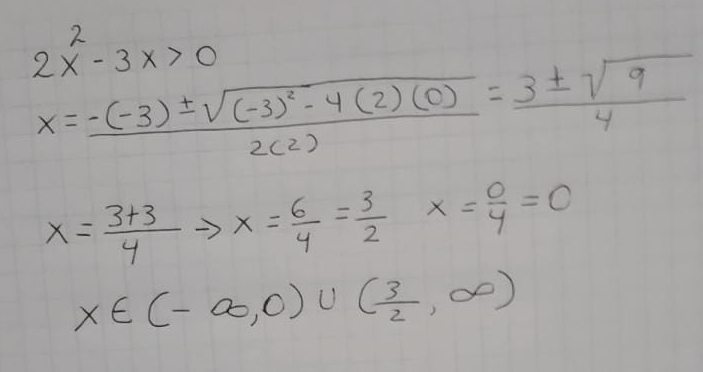 2x² - 3x > 0
x = -(-3) ± √((-3)² - 4(2)(0)) / 2(2) = 3 ± √9 / 4
x = 3+3 / 4 → x = 6/4 = 3/2 x = 0/4 = 0
x ∈ (-∞,0) ∪ (3/2, ∞)